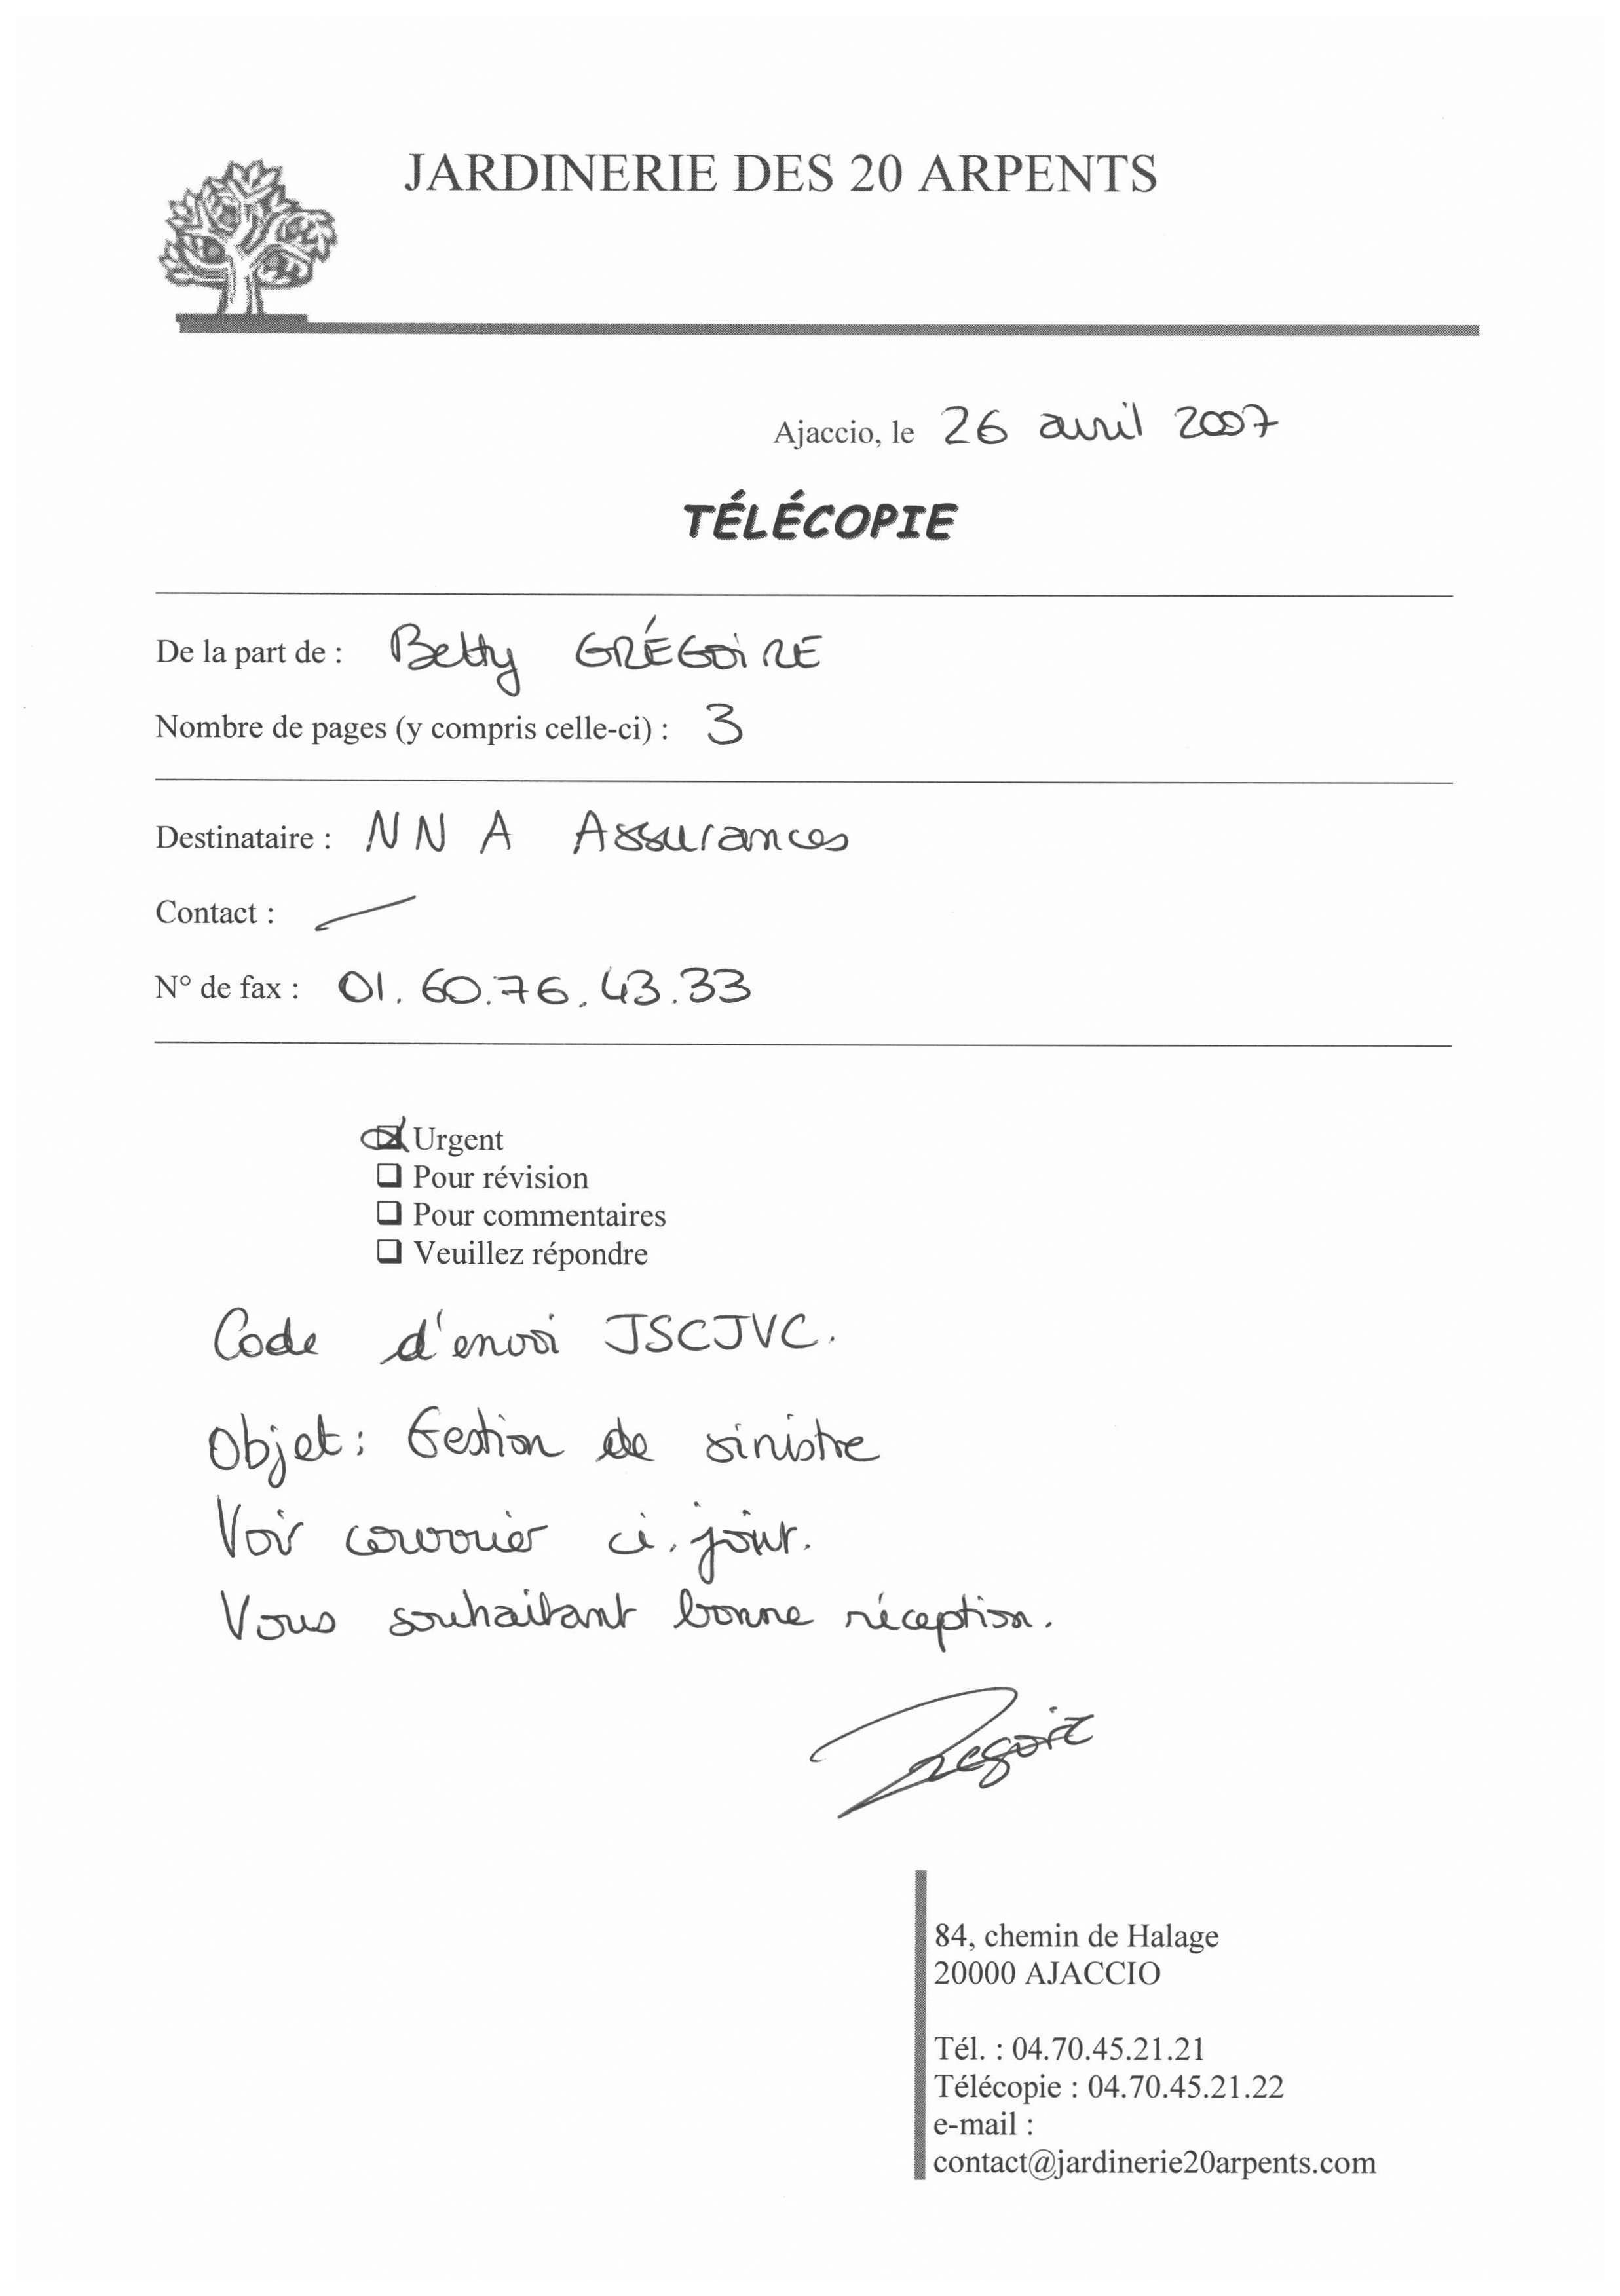 JARDINERIE DES 20 ARPENTS
Ajaccio, le 26 avril 2007
TÉLÉCOPIE
De la part de : Betty GRÉGOIRE
Nombre de pages (y compris celle-ci) : 3
Destinataire : NNA Assurances
Contact : —
N° de fax : 01.60.76.43.33
☒ Urgent
❑ Pour révision
❑ Pour commentaires
❑ Veuillez répondre
Code d'envoi JSCJVC.
Objet : Gestion de sinistre
Voir courrier ci-joint.
Vous souhaitant bonne réception.
Gregoire
84, chemin de Halage
20000 AJACCIO
Tél. : 04.70.45.21.21
Télécopie : 04.70.45.21.22
e-mail :
contact@jardinerie20arpents.com